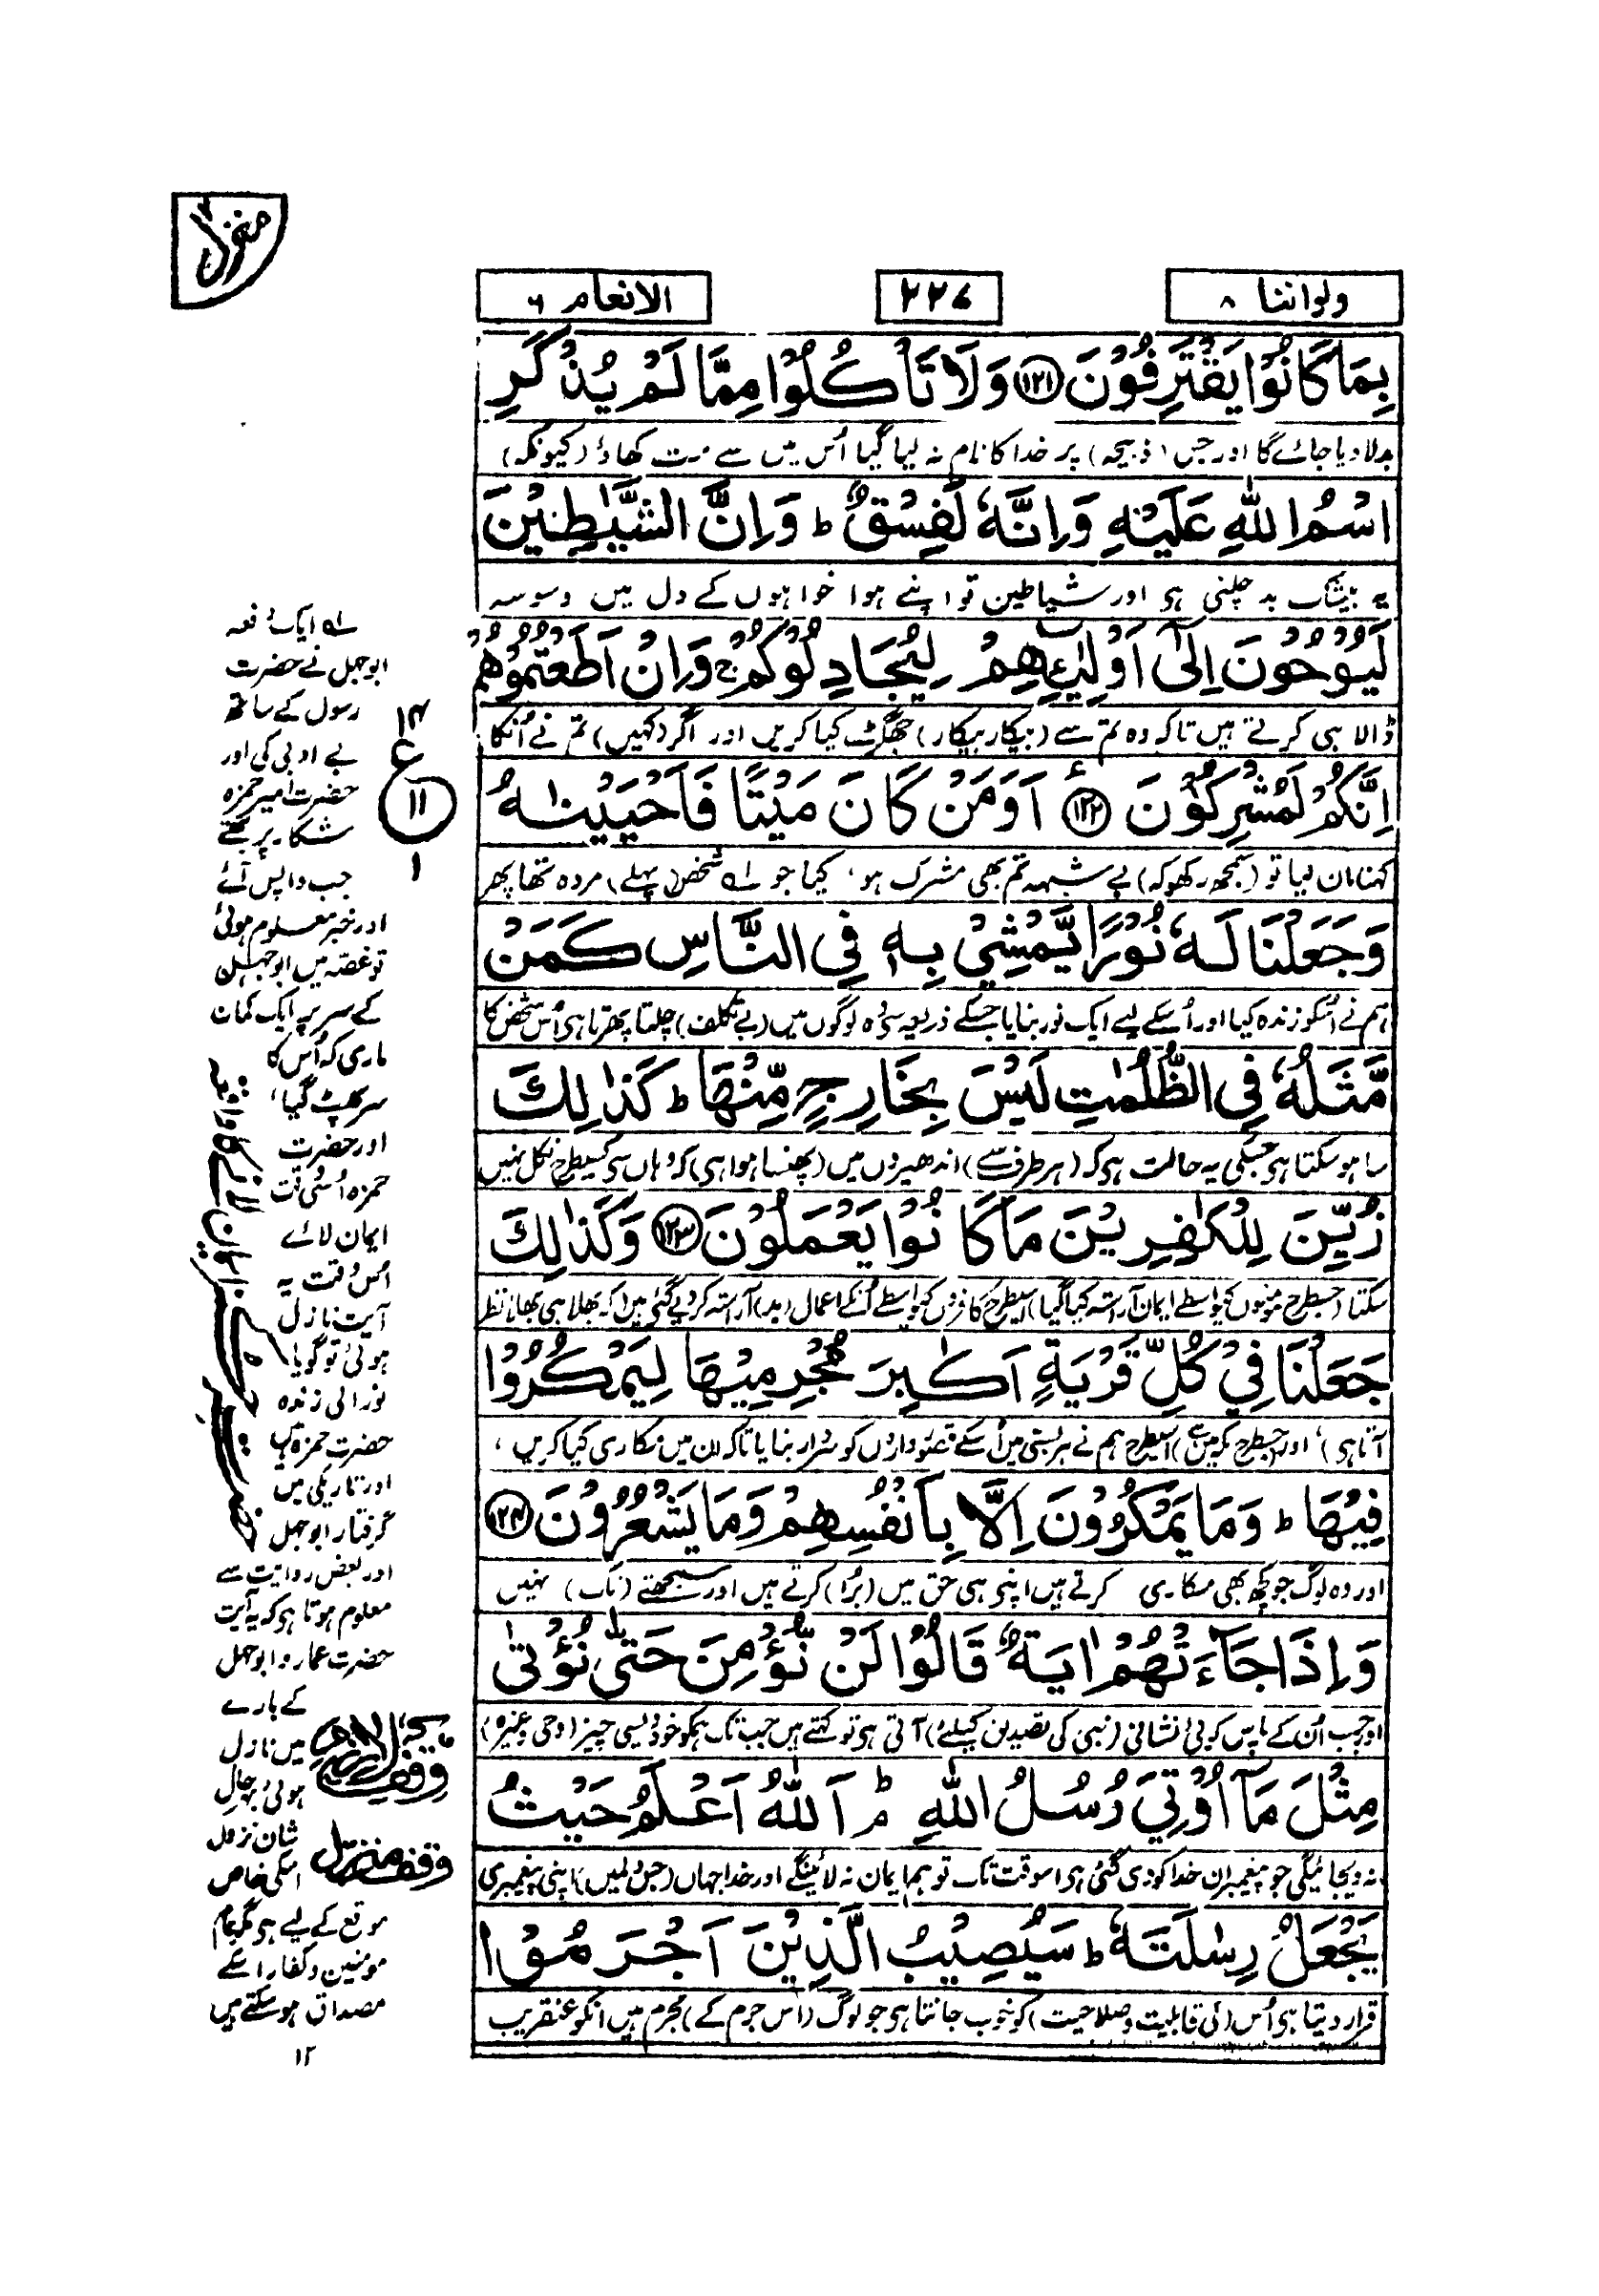 منزل ۲
ولواننا ۸
۲۲۷
الانعام ۶
بِمَا كَانُوْا يَقْتَرِفُوْنَ ﴿۱۲۱﴾ وَلَا تَاْكُلُوْا مِمَّا لَمْ يُذْكَرِ
بدلا دیا جائے گا اور جس (ذبیحہ) پر خدا کا نام نہ لیا گیا اُس میں سے مت کھاؤ (کیونکہ)
اسْمُ اللّٰهِ عَلَيْهِ وَاِنَّهٗ لَفِسْقٌ ؕ وَاِنَّ الشَّيٰطِيْنَ
یہ بیشک بد چلنی ہی اور شیاطین تو اپنے ہوا خواہوں کے دل میں وسوسہ
لَيُوْحُوْنَ اِلٰٓى اَوْلِيٰٓـِٕهِمْ لِيُجَادِلُوْكُمْ ۚ وَاِنْ اَطَعْتُمُوْهُمْ
ڈالا ہی کرتے ہیں تاکہ وہ تم سے (بیکار بیکار) جھگڑے کیا کریں اور اگر (کہیں) تم نے اُنکا
اِنَّكُمْ لَمُشْرِكُوْنَ ﴿۱۲۲﴾ اَوَمَنْ كَانَ مَيْتًا فَاَحْيَيْنٰهُ
کہنا مان لیا تو (سمجھ رکھو کہ) بے شبہہ تم بھی مشرک ہو، کیا جو لہ شخص (پہلے) مردہ تھا پھر
وَجَعَلْنَا لَهٗ نُوْرًا يَّمْشِيْ بِهٖ فِى النَّاسِ كَمَنْ
ہم نے اُسکو زندہ کیا اور اُسکے لیے ایک نور بنایا جسکے ذریعہ سی وہ لوگوں میں (بے تکلف) چلتا پھرتا ہی اُس شخص کا
مَّثَلُهٗ فِى الظُّلُمٰتِ لَيْسَ بِخَارِجٍ مِّنْهَا ؕ كَذٰلِكَ
سا ہو سکتا ہی جسکی یہ حالت ہی کہ (ہر طرف سے) اندھیروں میں (پھنسا ہوا ہی) کہ وہاں سی کسیطرح نکل نہیں
زُيِّنَ لِلْكٰفِرِيْنَ مَا كَانُوْا يَعْمَلُوْنَ ﴿۱۲۳﴾ وَكَذٰلِكَ
سکتا (جسطرح مومنوں کیواسطے ایمان آراستہ کیا گیا) اسیطرح کافروں کیواسطے اُنکے اعمال (بد) آراستہ کر دیے گئی ہیں (کہ بھلا ہی بھلا نظر
جَعَلْنَا فِيْ كُلِّ قَرْيَةٍ اَكٰبِرَ مُجْرِمِيْهَا لِيَمْكُرُوْا
آتا ہی)، اور (جسطرح مکہ میں ہے) اسیطرح ہم نے ہر بستی میں اُسکے قصورواروں کو سردار بنایا تاکہ ان میں مکاری کیا کریں،
فِيْهَا ؕ وَمَا يَمْكُرُوْنَ اِلَّا بِاَنْفُسِهِمْ وَمَا يَشْعُرُوْنَ ﴿۱۲۴﴾
اور وہ لوگ جو کچھ بھی مکاری کرتے ہیں اپنی ہی حق میں (بُرا) کرتے ہیں اور سمجھتے (تک) نہیں
وَاِذَا جَآءَتْهُمْ اٰيَةٌ قَالُوْا لَنْ نُّؤْمِنَ حَتّٰى نُؤْتٰى
اور جب اُن کے پاس کوئی نشانی (نبی کی تصدیق کیلئے) آتی ہی تو کہتے ہیں جب تک ہمکو خود ویسی چیز (وحی وغیرہ)
مِثْلَ مَآ اُوْتِيَ رُسُلُ اللّٰهِ ؔۘ اَللّٰهُ اَعْلَمُ حَيْثُ
نہ دیجائیگی جو پیغمبران خدا کو دی گئی ہی اسوقت تک تو ہم ایمان نہ لائینگے اور خدا جہاں (جس دل میں) اپنی پیغمبری
يَجْعَلُ رِسٰلَتَهٗ ؕ سَيُصِيْبُ الَّذِيْنَ اَجْرَمُوْا
قرار دیتا ہی اُس (کی قابلیت و صلاحیت) کو خوب جانتا ہی جو لوگ (اس جرم کے) مجرم ہیں انکو عنقریب
۱۴
ع
۱۱
۱
لہ ایک دفعہ
ابو جہل نے حضرت
رسول کے ساتھ
بے ادبی کی اور
حضرت امیر حمزہ
شکار پر تھے
جب واپس آئے
اور خبر معلوم ہوئی
تو غصہ میں ابوجہل
کے سر پہ ایک کمان
ماری کہ اُس کا
سر پھٹ گیا،
اور حضرت
حمزہ اُسی وقت
ایمان لائے
اُس وقت یہ
آیت نازل
ہوئی تو گویا
نور الٰہی زندہ
حضرت حمزہ ہیں
اور تاریکی میں
گرفتار ابو جہل
اور بعض روایت سے
معلوم ہوتا ہی کہ یہ آیت
حضرت عمار و ابو جہل
کے بارے
میں نازل
ہوئی بہر حال
شان نزول
اسکی خاص
موقع کے لیے ہو مگر عام
مومنین و کفار اسکے
مصداق ہو سکتے ہیں
۱۲
وقف منزل